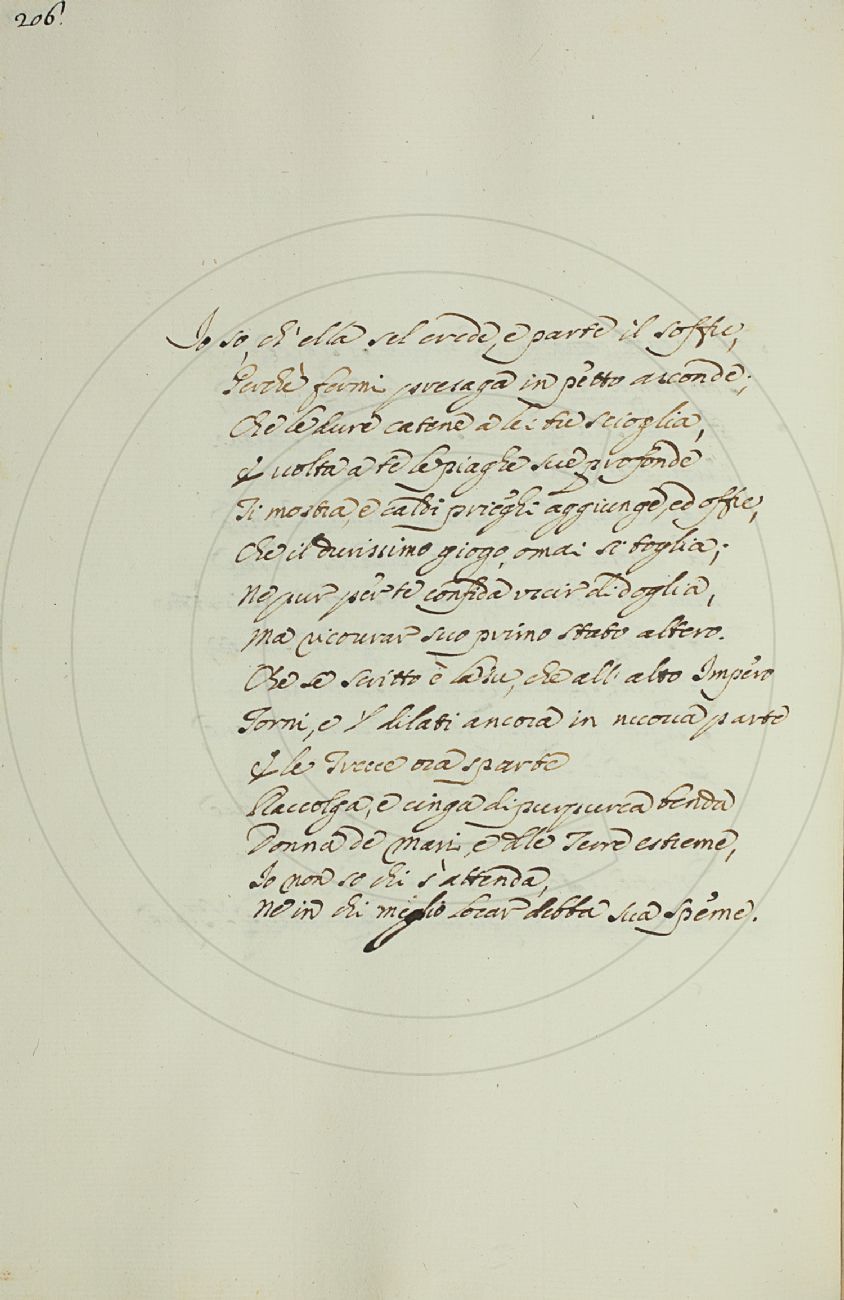 206.
Io so, ch'ella sel crede, e parte il soffre,
Perchè fermi presaga in petto asconde;
Che le dure catene a lei tu scioglia,
E volta a te le piaghe sue profonde
Ti mostra, e caldi prieghi aggiunge, ed offre,
Che il durissimo giogo omai si toglia;
Ne pur per te confida uscir di doglia,
Ma ricovrar suo primo stato altero.
Che se scritto è lassu, che all'alto Impero
Torni, e dilati ancora in nuova parte
E le Trecce ora sparte
Raccolga, e cinga di purpurea benda
Donna de Mari, e dle Terre estreme,
Io non so chi s'attenda,
Ne in chi meglio locar debba sua speme.